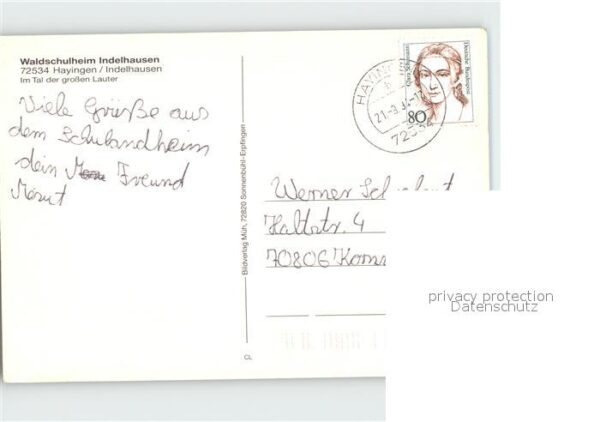 Waldschulheim Indelhausen
72534 Hayingen / Indelhausen
Im Tal der großen Lauter
Viele Grüße aus
dem Schulandheim
dein Freund
Bildverlag Müh, 72820 Sonnenbühl-Erpfingen
CL
Deutsche Bundespost
Clara Schumann
80
HAYINGEN
72534
Werner
70806
privacy protection
Datenschutz